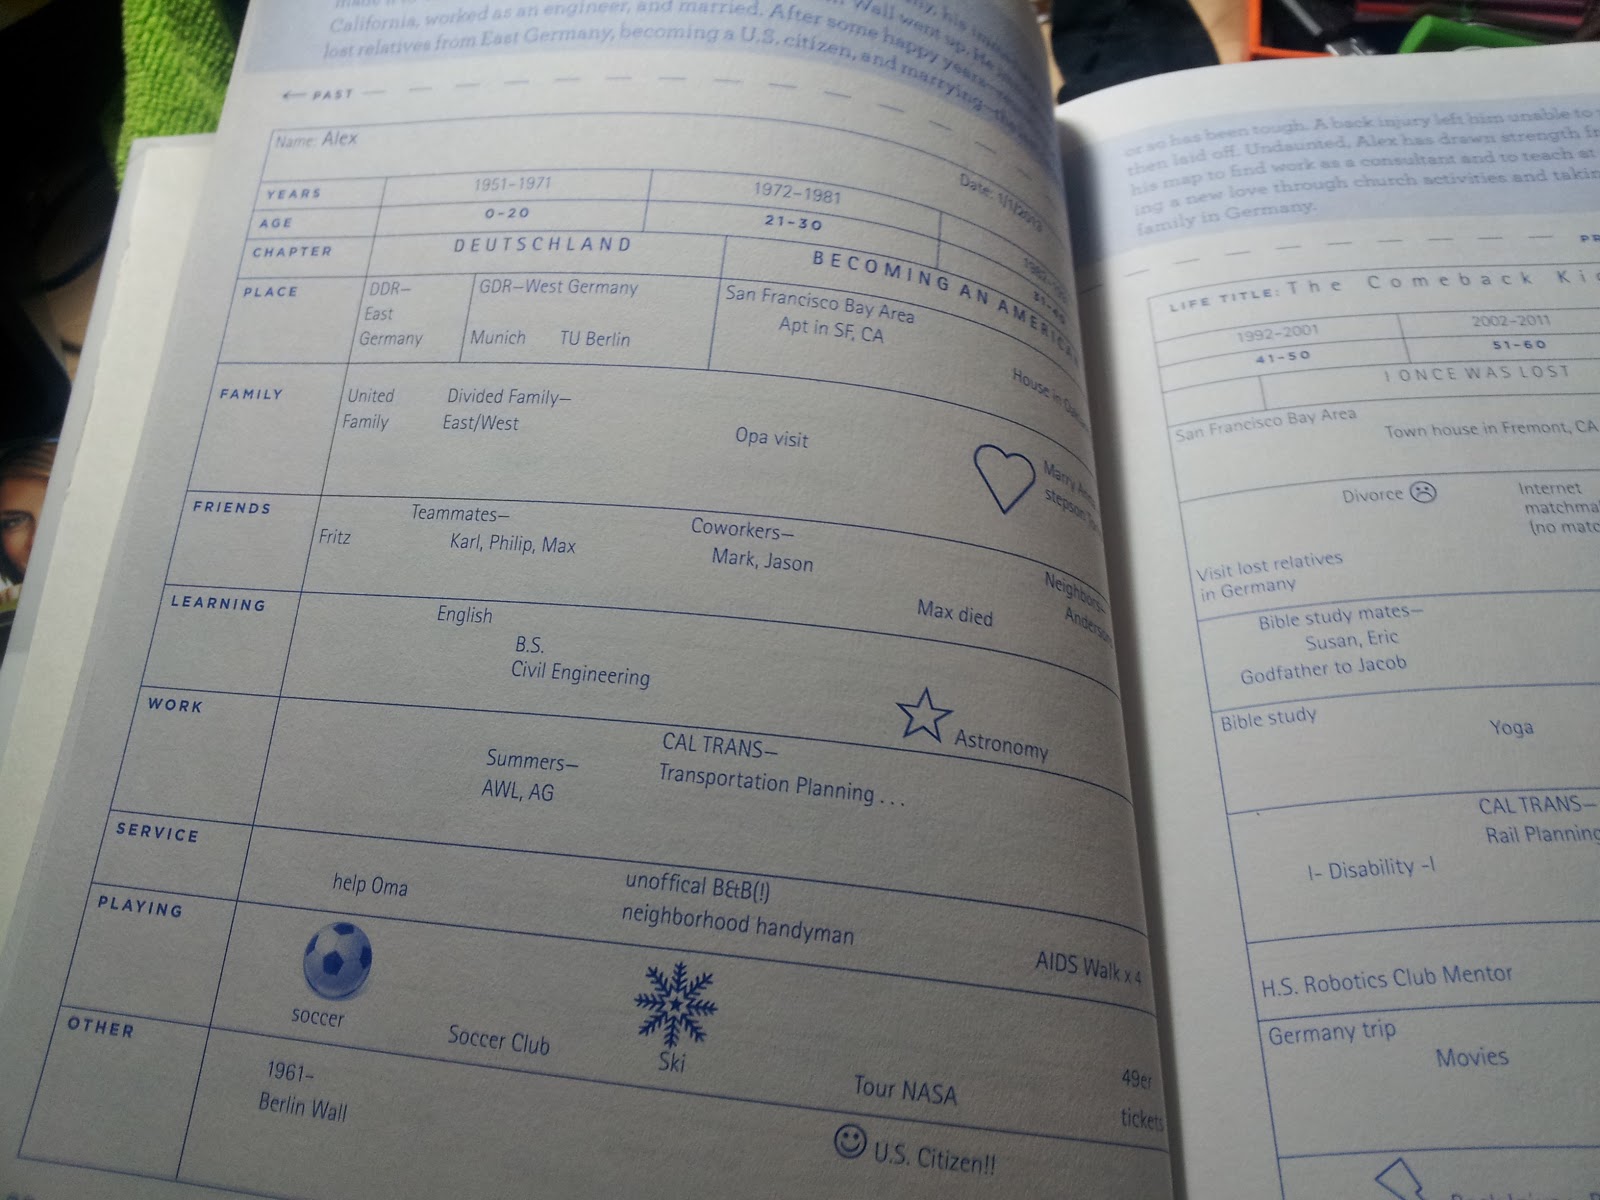 California, worked as an engineer, and married. After some happy years
lost relatives from East Germany, becoming a U.S. citizen, and marrying—the
Wall went up. He
← PAST
Name: Alex
Date: 1/1/2013
YEARS 1951–1971 1972–1981
AGE 0-20 21-30 31-40
CHAPTER DEUTSCHLAND BECOMING AN AMERICAN
PLACE DDR— GDR—West Germany San Francisco Bay Area
East Apt in SF, CA
Germany Munich TU Berlin
House in
FAMILY United Divided Family—
Family East/West Opa visit
Marry
stepson
FRIENDS Teammates— Coworkers—
Fritz Karl, Philip, Max Mark, Jason
Max died
Neighbors—
LEARNING English
B.S.
Civil Engineering
Astronomy
WORK Summers— CAL TRANS—
AWL, AG Transportation Planning . . .
SERVICE help Oma unoffical B&B(!)
neighborhood handyman
AIDS Walk x 4
PLAYING soccer Soccer Club Ski
Tour NASA 49er
tickets
OTHER 1961–
Berlin Wall
U.S. Citizen!!
or so has been tough. A back injury left him unable to
then laid off. Undaunted, Alex has drawn strength
his map to find work as a consultant and to teach at
ing a new love through church activities and
family in Germany.
LIFE TITLE: The Comeback
1992–2001 2002–2011
41-50 51-60
I ONCE WAS LOST
San Francisco Bay Area
Town house in Fremont, CA
Divorce Internet
(no
Visit lost relatives
in Germany
Bible study mates—
Susan, Eric
Godfather to Jacob
Bible study
Yoga
CAL TRANS—
Rail Planning
I- Disability -I
H.S. Robotics Club Mentor
Germany trip
Movies